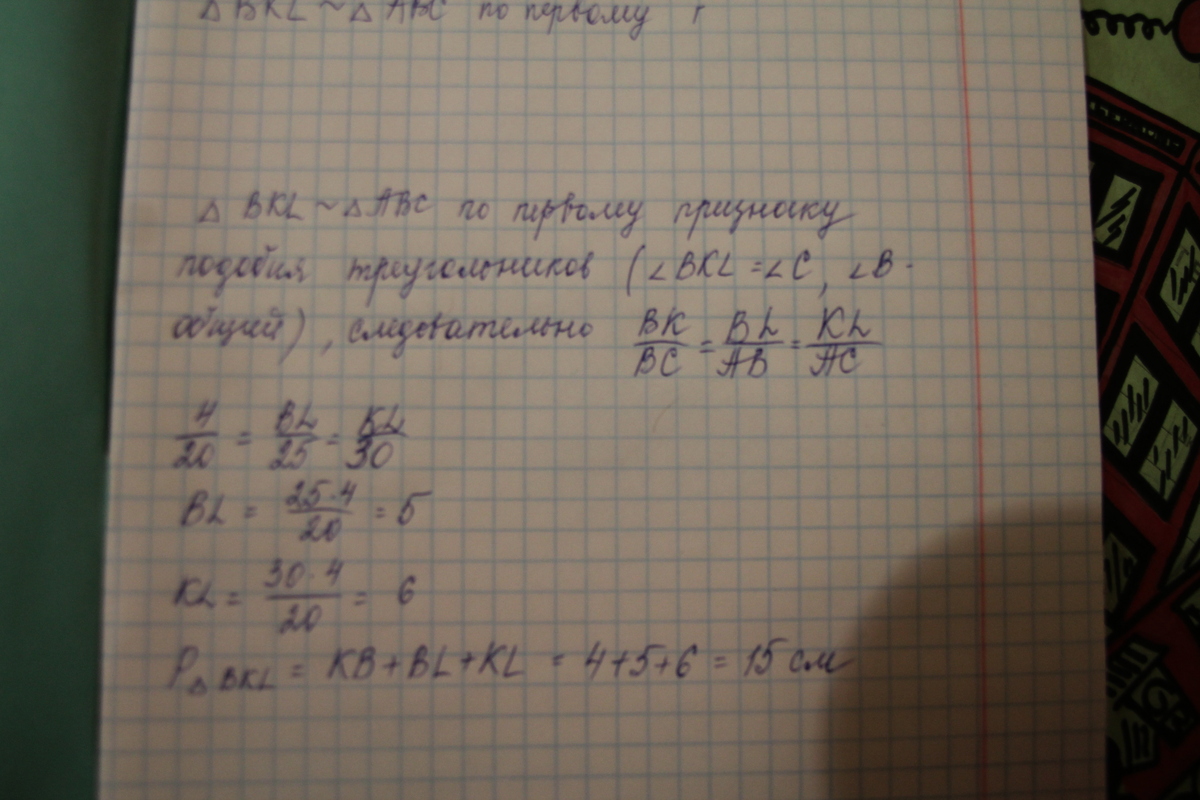 △ BKL ~ △ ABC по первому
△ BKL ~ △ ABC по первому признаку
подобия треугольников (∠BKL = ∠C, ∠B -
общий), следовательно BK/BC = BL/AB = KL/AC
4/20 = BL/25 = KL/30
BL = 25·4/20 = 5
KL = 30·4/20 = 6
P△BKL = KB+BL+KL = 4+5+6 = 15 см